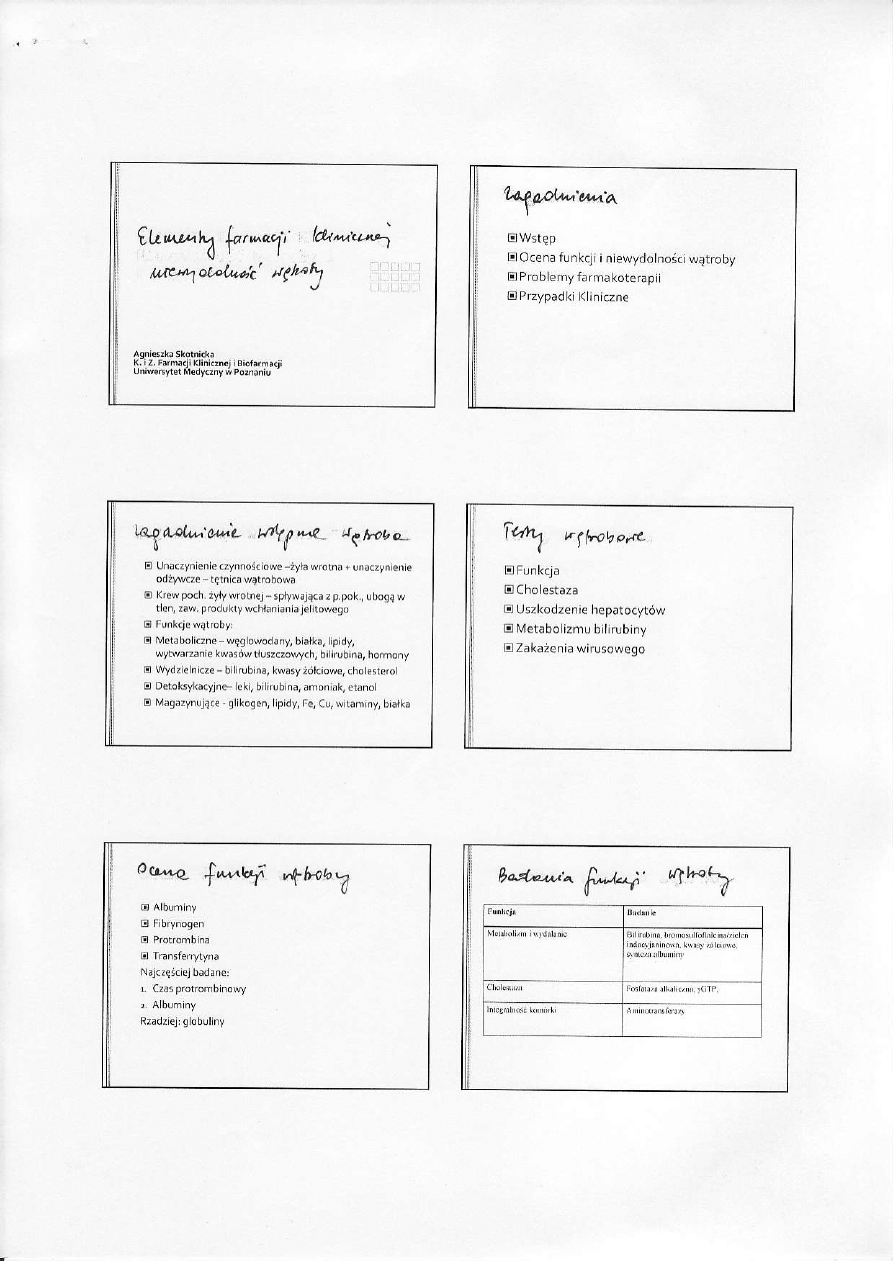 Elementy farmacji klinicznej
niewydolność wątroby
Agnieszka Skotnicka
K. i Z. Farmacji Klinicznej i Biofarmacji
Uniwersytet Medyczny w Poznaniu
Zagadnienia
Wstęp
Ocena funkcji i niewydolności wątroby
Problemy farmakoterapii
Przypadki Kliniczne
Zagadnienie wstępne wątroba
Unaczynienie czynnościowe –żyła wrotna + unaczynienie
odżywcze – tętnica wątrobowa
Krew poch. żyły wrotnej – spływająca z p.pok., ubogą w
tlen, zaw. produkty wchłaniania jelitowego
Funkcje wątroby:
Metaboliczne – węglowodany, białka, lipidy,
wytwarzanie kwasów tłuszczowych, bilirubina, hormony
Wydzielnicze – bilirubina, kwasy żółciowe, cholesterol
Detoksykacyjne– leki, bilirubina, amoniak, etanol
Magazynujące - glikogen, lipidy, Fe, Cu, witaminy, białka
Testy wątrobowe
Funkcja
Cholestaza
Uszkodzenie hepatocytów
Metabolizmu bilirubiny
Zakażenia wirusowego
Ocena funkcji wątroby
Albuminy
Fibrynogen
Protrombina
Transferrytyna
Najczęściej badane:
1. Czas protrombinowy
2. Albuminy
Rzadziej: globuliny
Badania funkcji wątroby
Funkcja Badanie
Metabolizm i wydalanie Bilirubina, bromosulfoftaleina/zieleń
indocyjaninowa, kwasy żółciowe,
synteza albuminy
Cholestaza Fosfataza alkaliczna, γGTP,
Integralność komórki Aminotransferazy